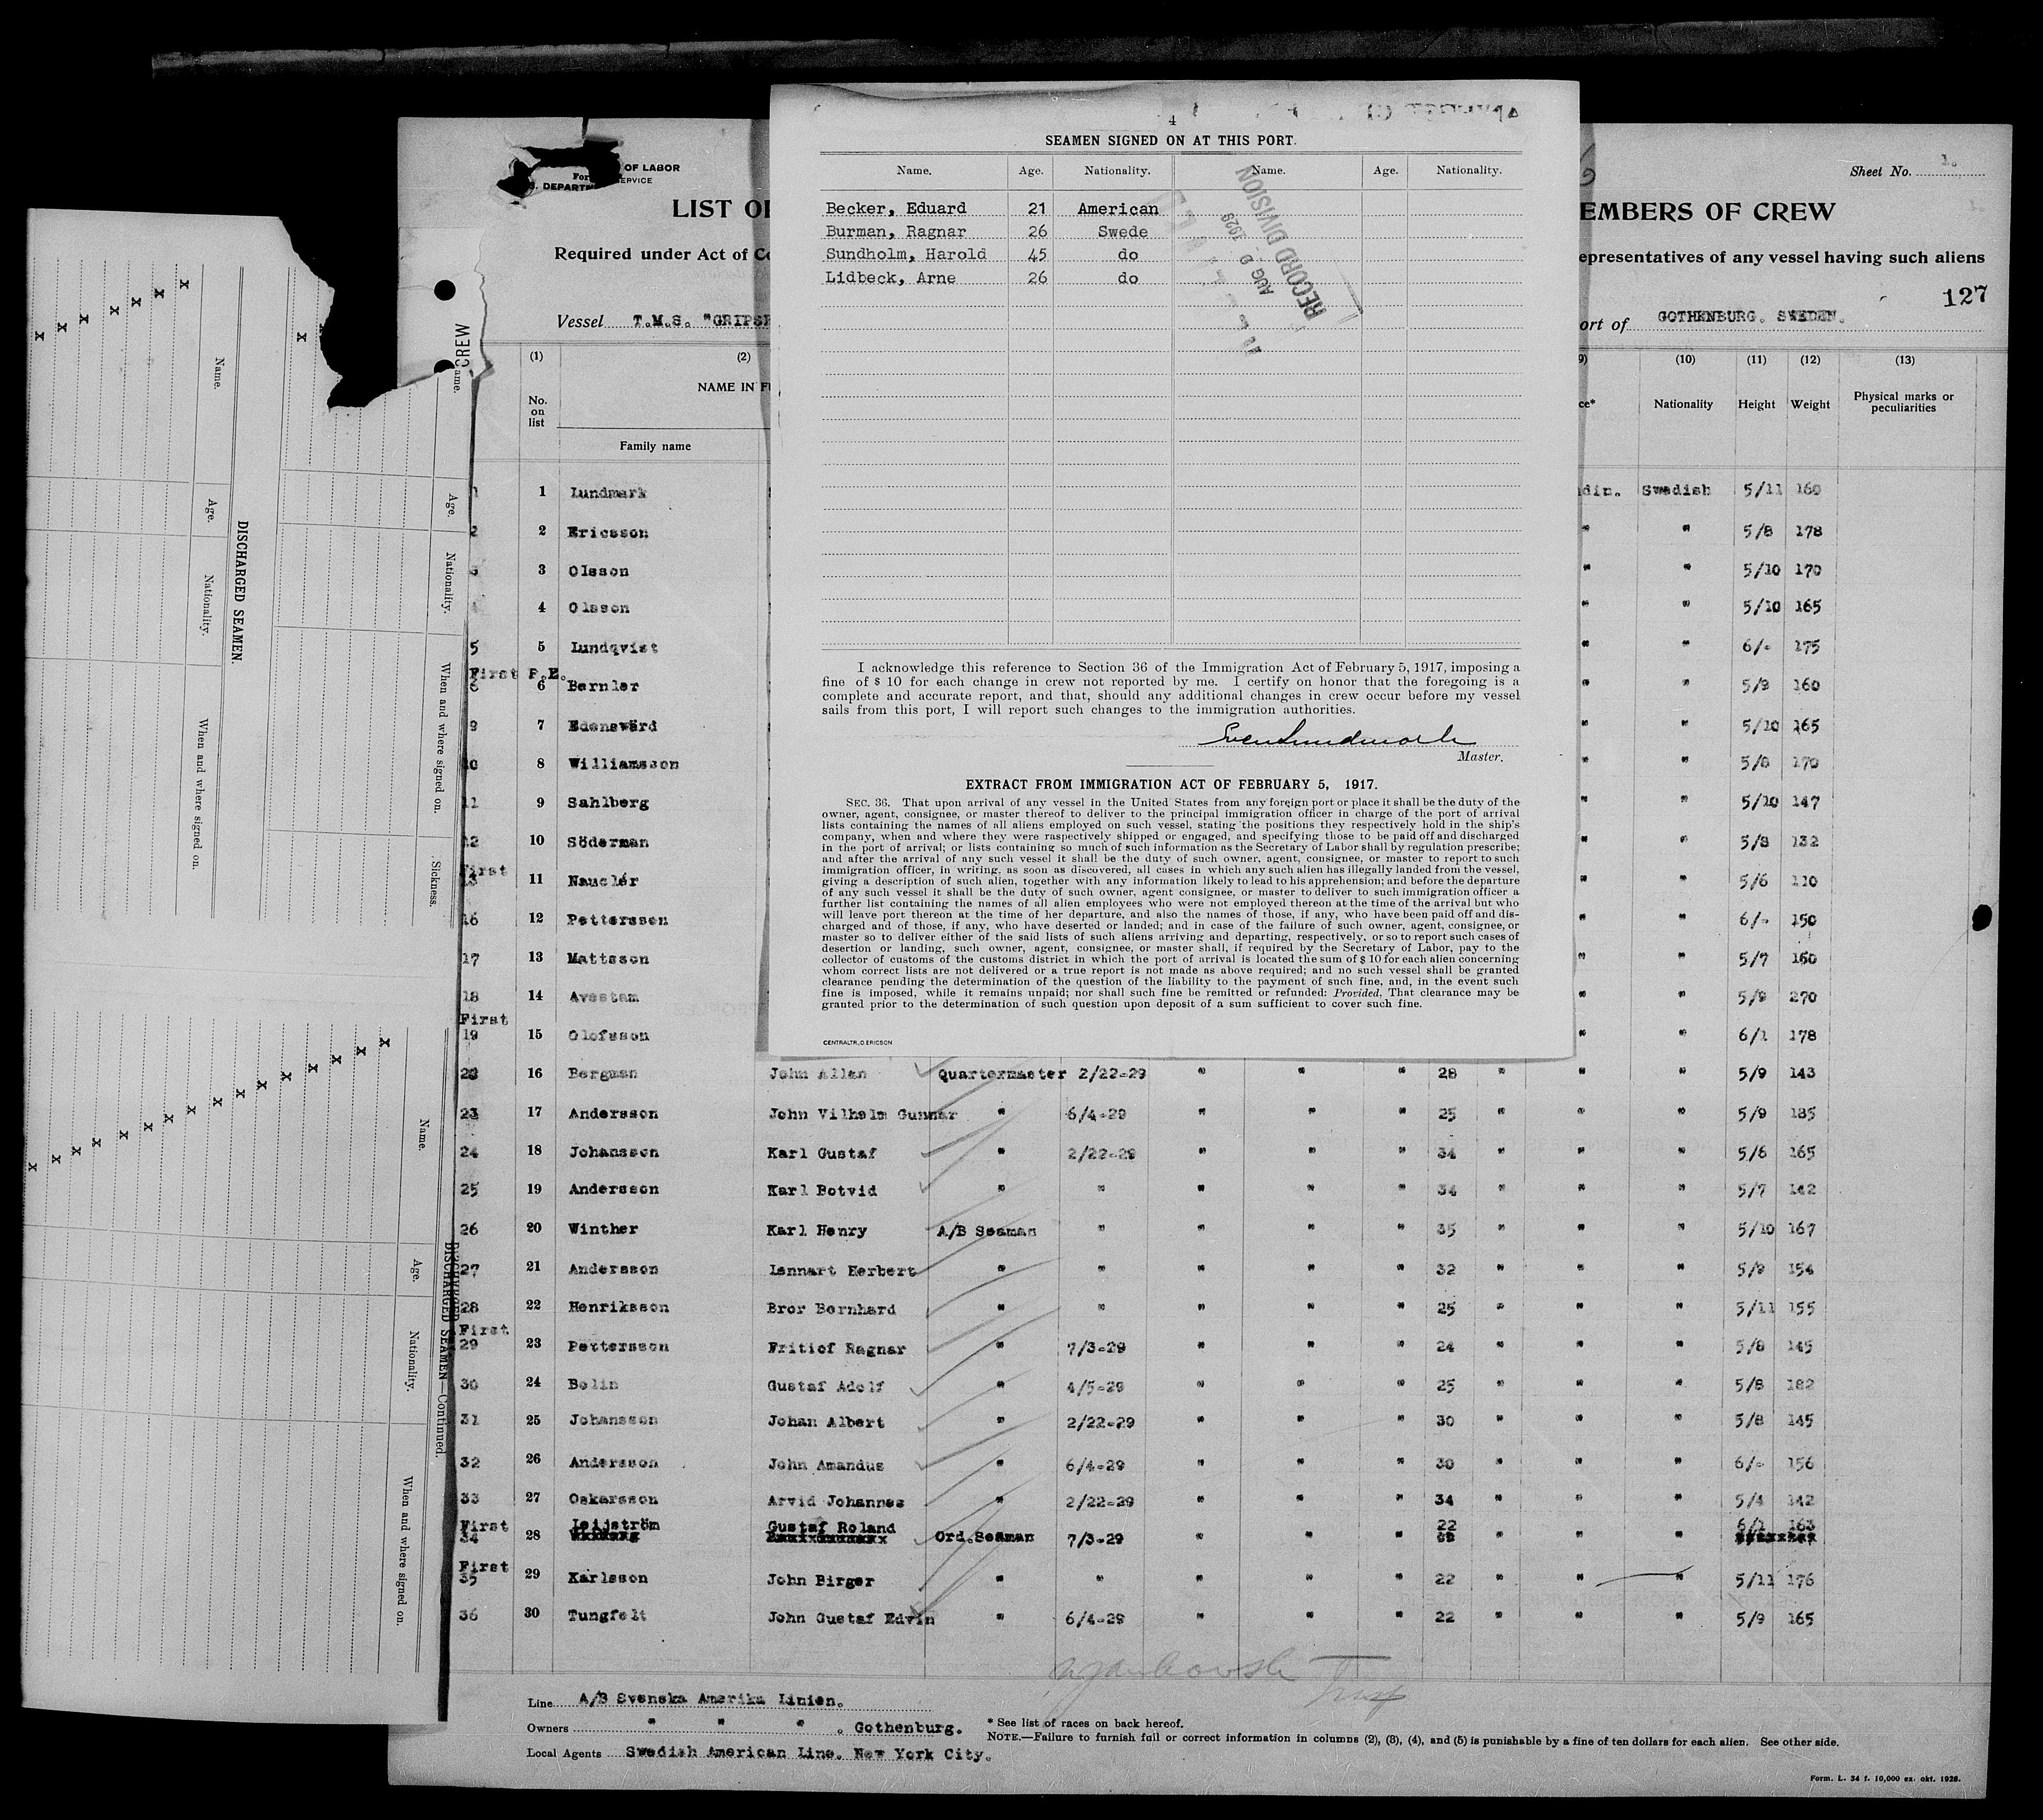 4
SEAMEN SIGNED ON AT THIS PORT.
Name. Age. Nationality. Name. Age. Nationality.
Becker, Eduard 21 American
Burman, Ragnar 26 Swede
Sundholm, Harold 45 do
Lidbeck, Arne 26 do
RECORD DIVISION
AUG 1929
I acknowledge this reference to Section 36 of the Immigration Act of February 5, 1917, imposing a
fine of $ 10 for each change in crew not reported by me. I certify on honor that the foregoing is a
complete and accurate report, and that, should any additional changes in crew occur before my vessel
sails from this port, I will report such changes to the immigration authorities.
Master.
EXTRACT FROM IMMIGRATION ACT OF FEBRUARY 5, 1917.
SEC. 36. That upon arrival of any vessel in the United States from any foreign port or place it shall be the duty of the
owner, agent, consignee, or master thereof to deliver to the principal immigration officer in charge of the port of arrival
lists containing the names of all aliens employed on such vessel, stating the positions they respectively hold in the ship's
company, when and where they were raspectively shipped or engaged, and specifying those to be paid off and discharged
in the port of arrival; or lists containing so much of such information as the Secretary of Labor shall by regulation prescribe;
and after the arrival of any such vessel it shall be the duty of such owner, agent, consignee, or master to report to such
immigration officer, in writing, as soon as discovered, all cases in which any such alien has illegally landed from the vessel,
giving a description of such alien, together with any information likely to lead to his apprehension; and before the departure
of any such vessel it shall be the duty of such owner, agent consignee, or master to deliver to such immigration officer a
further list containing the names of all alien employees who were not employed thereon at the time of the arrival but who
will leave port thereon at the time of her departure, and also the names of those, if any, who have been paid off and dis-
charged and of those, if any, who have deserted or landed; and in case of the failure of such owner, agent, consignee, or
master so to deliver either of the said lists of such aliens arriving and departing, respectively, or so to report such cases of
desertion or landing, such owner, agent, consignee, or master shall, if required by the Secretary of Labor, pay to the
collector of customs of the customs district in which the port of arrival is located the sum of $ 10 for each alien concerning
whom correct lists are not delivered or a true report is not made as above required; and no such vessel shall be granted
clearance pending the determination of the question of the liability to the payment of such fine, and, in the event such
fine is imposed, while it remains unpaid; nor shall such fine be remitted or refunded: Provided, That clearance may be
granted prior to the determination of such question upon deposit of a sum sufficient to cover such fine.
CENTRALTR., O. ERICSON
OF LABOR
SERVICE
Sheet No. 1.
LIST OF
EMBERS OF CREW
Required under Act of Co
epresentatives of any vessel having such aliens
127
Vessel T.M.S. "GRIPSH
ort of GOTHENBURG. SWEDEN.
CREW
(1) (2) (10) (11) (12) (13)
No. on list NAME IN FU Nationality Height Weight Physical marks or peculiarities
Family name
1 Lundmark din. Swedish 5/11 160
2 2 Ericsson " " 5/8 178
3 Olsson " " 5/10 170
4 Olsson " " 5/10 165
5 5 Lundqvist " " 6/- 175
First P.E.
6 6 Bernler " " 5/9 160
9 7 Edensvärd " " 5/10 165
10 8 Williamsson " " 5/8 170
11 9 Sahlberg " " 5/10 147
12 10 Söderman " " 5/8 132
First
13 11 Nauclér " " 5/6 110
16 12 Pettersson " " 6/- 150
17 13 Mattsson " " 5/7 160
18 14 Avestam " " 5/9 270
First
19 15 Olofsson " " 6/1 178
16 Bergman John Allan Quartermaster 2/22-29 " " " 28 " " " 5/9 143
23 17 Andersson John Vilhelm Gunnar " 6/4-29 " " " 25 " " " 5/9 185
24 18 Johansson Karl Gustaf " 2/22-29 " " " 34 " " " 5/6 165
25 19 Andersson Karl Botvid " " " " " 34 " " " 5/7 142
26 20 Winther Karl Henry A/B Seaman " " " " 35 " " " 5/10 167
27 21 Andersson Lennart Herbert " " " " " 32 " " " 5/9 154
28 22 Henriksson Bror Bernhard " " " " " 25 " " " 5/11 155
First
29 23 Pettersson Fritiof Ragnar " 7/3-29 " " " 24 " " " 5/8 145
30 24 Bolin Gustaf Adolf " 4/5-29 " " " 25 " " " 5/8 182
31 25 Johansson Johan Albert " 2/22-29 " " " 30 " " " 5/8 145
32 26 Andersson John Amandus " 6/4-29 " " " 30 " " " 6/- 156
33 27 Oskarsson Arvid Johannes " 2/22-29 " " " 34 " " " 5/4 142
First Leijström Gustaf Roland 22 6/1 163
34 28 Ord.Seaman 7/3-29 " " " " " "
First
35 29 Karlsson John Birger " " " " " 22 " " " 5/11 176
36 30 Tungfelt John Gustaf Edvin " 6/4-29 " " " 22 " " " 5/9 165
Line A/B Svenska Amerika Linien.
Owners " " " . Gothenburg.
Local Agents Swedish American Line. New York City.
* See list of races on back hereof.
NOTE.—Failure to furnish full or correct information in columns (2), (3), (4), and (5) is punishable by a fine of ten dollars for each alien. See other side.
Form. L. 34 f. 10,000 ex. okt. 1928.
DISCHARGED SEAMEN.
Name. Age. Nationality. When and where signed on.
x x x x x x x
ame. Age. Nationality. When and where signed on. Sickness.
DISCHARGED SEAMEN—Continued.
Name. Age. Nationality. When and where signed on.
x x x x x x x x x x x x x x x x